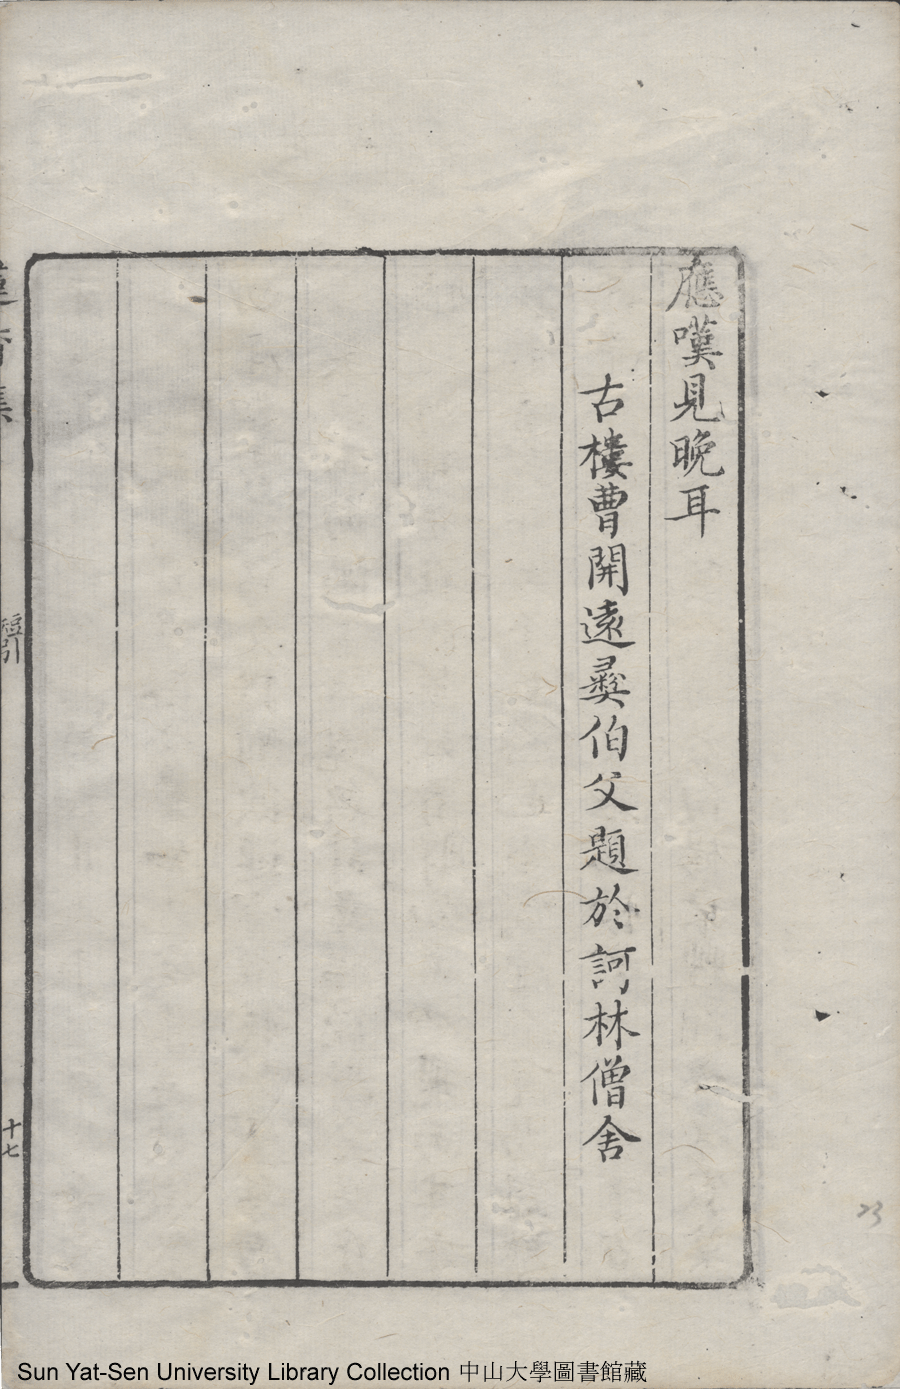 應嘆見晚耳
古樓曹開遠彞伯父題於訶林僧舍
短引
十七
23
Sun Yat-Sen University Library Collection 中山大學圖書館藏